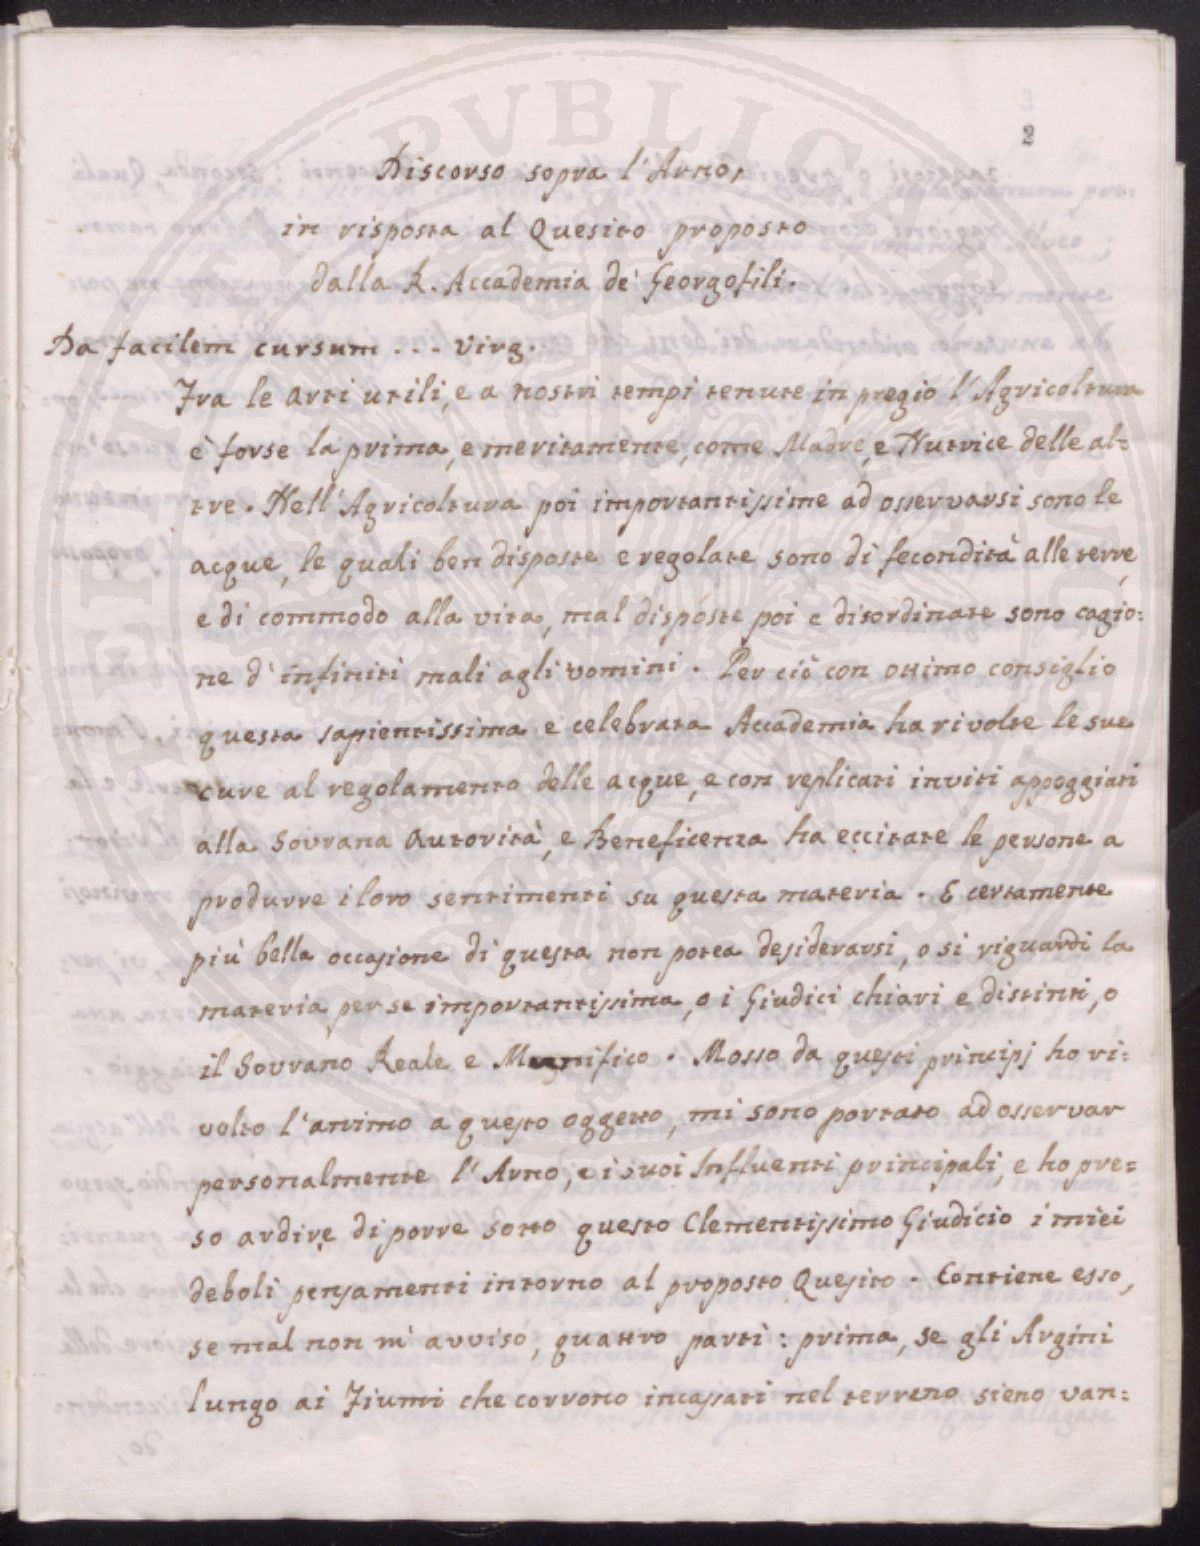 2
Discorso sopra l'Arno,
in risposta al Quesito proposto
dalla R. Accademia de' Georgofili.
Da facilem cursum ... Virg.
Fra le arti utili, e a nostri tempi tenute in pregio l'Agricoltura
è forse la prima, e meritamente, come Madre, e Nutrice delle al=
tre. Nell'Agricoltura poi importantissime ad osservarsi sono le
acque, le quali ben disposte e regolate sono di fecondità alle terre,
e di commodo alla vita, mal disposte poi e disordinate sono cagio=
ne d'infiniti mali agli uomini. Per ciò con ottimo consiglio
questa sapientissima e celebrata Accademia ha rivolte le sue
cure al regolamento delle acque, e con replicati inviti appoggiati
alla Sovrana Autorità, e Beneficenza ha eccitate le persone a
produrre i loro sentimenti su questa materia. E certamente
più bella occasione di questa non potea desiderarsi, o si riguardi la
materia per se importantissima, o i Giudici chiari e distinti, o
il Sovrano Reale e Magnifico. Mosso da questi principj ho ri=
volto l'animo a questo oggetto, mi sono portato ad osservar
personalmente l'Arno, e i suoi Influenti principali, e ho pre=
so ardire di porre sotto questo Clementissimo Giudicio i miei
deboli pensamenti intorno al proposto Quesito. Contiene esso,
se mal non m'avviso, quattro parti: prima, se gli Argini
lungo ai Fiumi che corrono incassati nel terreno sieno van=
PVBLICAE